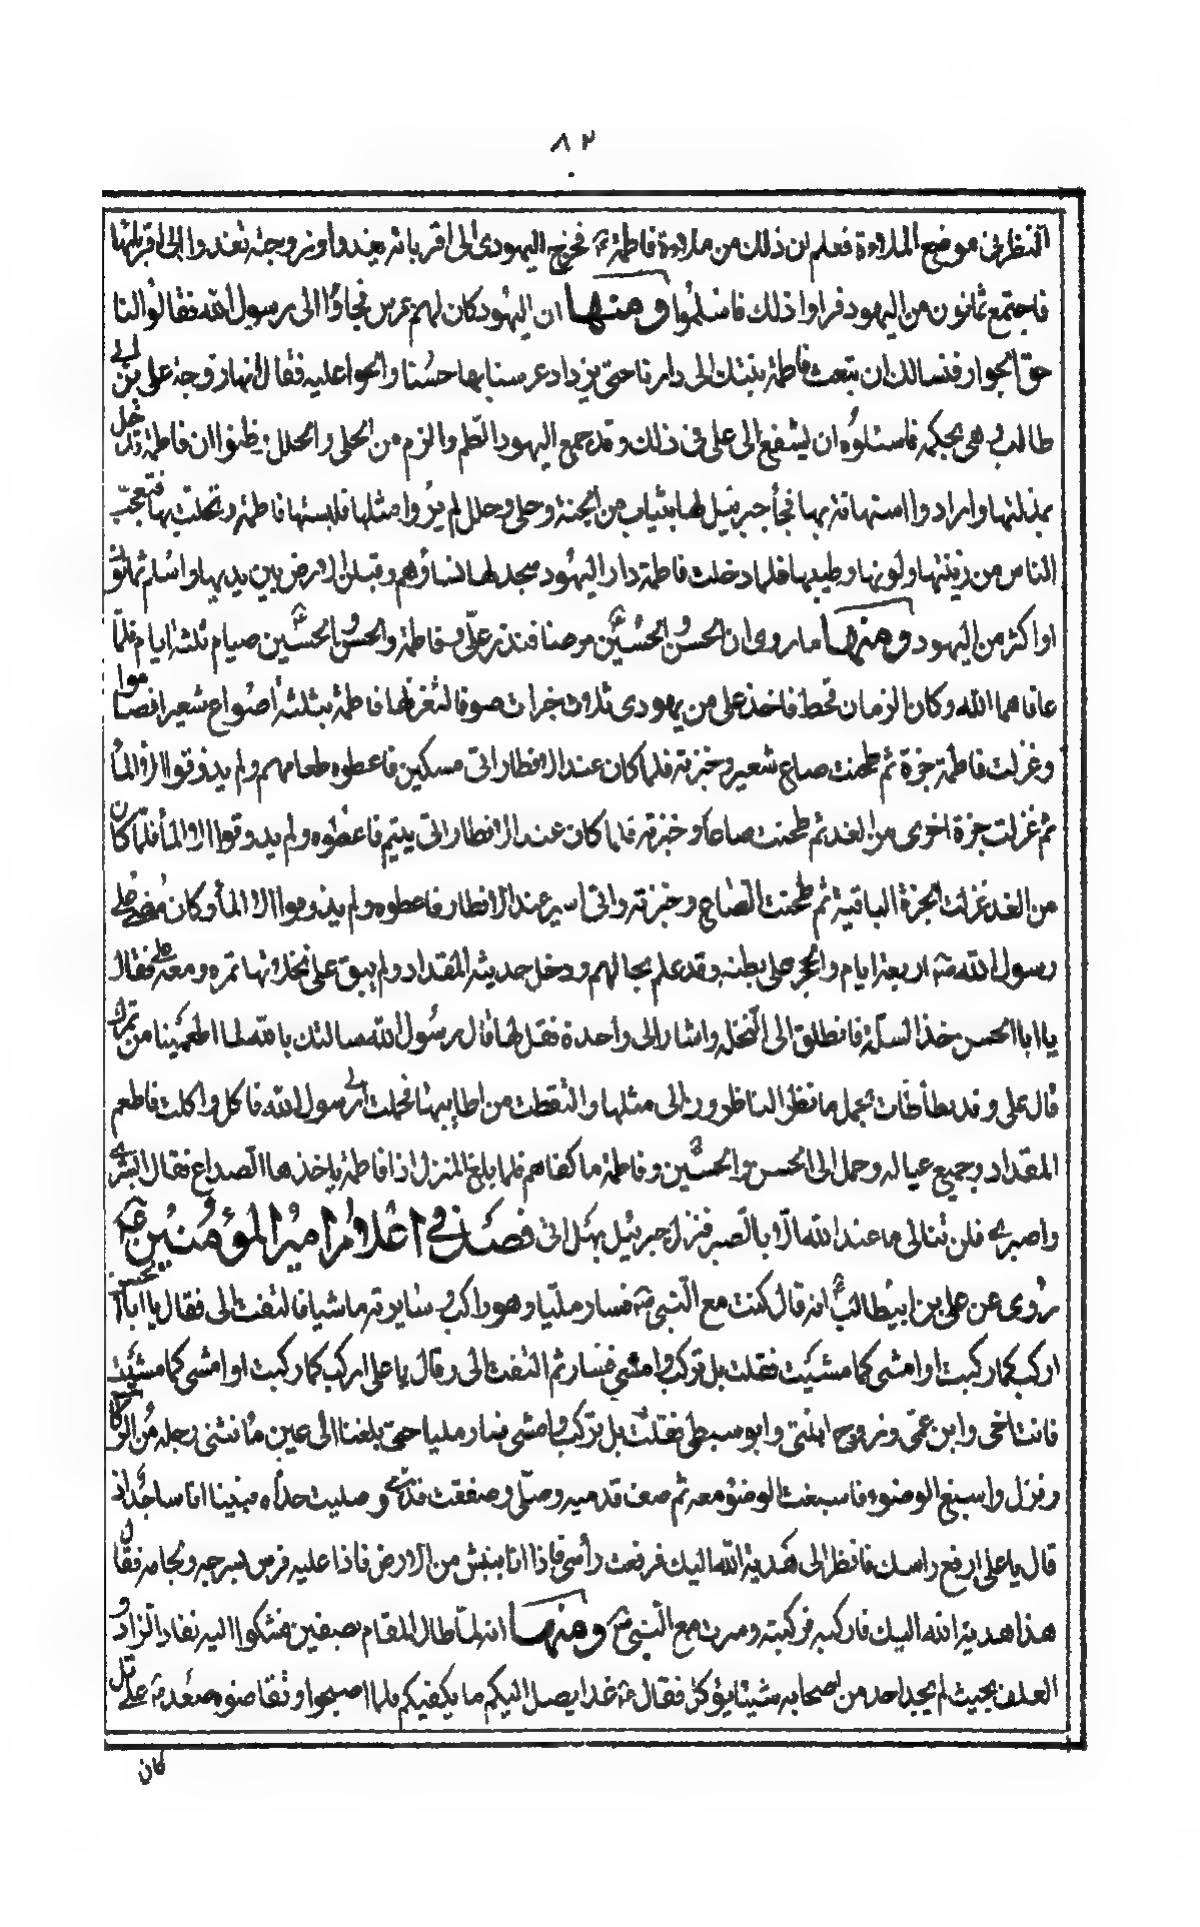 ٨٢
النظر في موضع الملاءة فعلم ان ذلك من ملاءة فاطمة ع فخرج اليهودى الى اقربائه يعدوا وزوجته تعدوا الى اقربائها
فاجتمع ثمانون من اليهود فراوا ذلك فاسلموا ومنها ان اليهود كان لهم عرس فجاؤا الى رسول الله فقالوا لنا
حق الجوار فنسالك ان تبعث فاطمة بنتك الى دارنا حتى يزداد عرسنا بها حسنا والحوا عليه فقال انها زوجة على بن ابي
طالب وهى بحكمه فاسئلوه ان يشفع الى على فى ذلك وقد جمع اليهود الطم والرم من الحلى والحلل وظنوا ان فاطمة تدخل
بذلتها وارادوا استهانة بها فجأ جبرئيل لها بثياب من الجنة وحلى وحلل لم يروا مثلها فلبستها فاطمة وتحلت بها فتعجب
الناس من زينتها ولونها وطيبها فلما دخلت فاطمة دار اليهود سجد لها نساؤهم وقبلن الارض بين يديها واسلم ثمانون
او اكثر من اليهود ومنها ما روى ان الحسن والحسين ع مرضا فنذر على وفاطمة والحسن والحسين ع صيام ثلثة ايام فلما
عافاهما الله وكان الزمان قحط فاخذ على من يهودى ثلاث جزات صوفا لتغزلها فاطمة بثلثة أصواع شعير افصاموا
وغزلت فاطمة جزة ثم طحنت صاع شعير وخبزته فلما كان عند الافطار اتى مسكين فاعطوه طعامهم ولم يذوقوا الا المأ
ثم غزلت جزة اخرى من الغد ثم طحنت صاعا وخبزته فلما كان عند الافطار اتى يتيم فاعطوه ولم يذوقوا الا المأ فلما كان
من الغد غزلت الجزة الباقية ثم طحنت الصاع وخبزته واتى اسير عند الافطار فاعطوه ولم يذوقوا الا المأ وكان مضى على
رسول الله ص اربعة ايام والحجر على بطنه وقد علم بحالهم ودخل حديقة المقداد ولم يبق على نخلاتها تمره ومعه على فقال
يا ابا الحسن خذ السلة فانطلق الى النخلة واشار الى واحدة فقل لها قال رسول الله سالتك بالله لما اطعمتينا من تمرك
قال على وقد تطأطأت بحمل ما نظر الناظرون الى مثلها والتقطت من اطايبها فحملت الى رسول الله فاكل واكلت فاطعم
المقداد وجميع عياله وحمل الى الحسن والحسين وفاطمة ما كفاهم فلما بلغ المنزل اذا فاطمة ياخذها الصداع فقال ابشرى
واصبرى فلن تنالى ما عند الله الا بالصبر فنزل جبرئيل بهل اتى فصل في اعلام امير المؤمنين ع
روى عن على بن ابيطالب ع انه قال كنت مع النبى ص فسار مليا وهو راكب وسايرته ماشيا فالتفت الى فقال يا ابا الحسن
اركب كما ركبت او امشى كما مشيت فقلت بل تركب وامشى فسار ثم التفت الى وقال يا على اركب كما ركبت او امشى كما مشيت
فانت اخى وابن عمى وزوج ابنتى وابو سبطى فقلت بل تركب وامشى فسار مليا حتى بلغنا الى عين ماء فثنى رجله من الركاب
ونزل واسبغ الوضوء فاسبغت الوضوء معه ثم صف قدميه وصلى وصففت قدمى وصليت حذاه فبينا انا ساجد اذ
قال يا على ارفع راسك فانظر الى هدية الله اليك فرفعت رأسى فاذا انا بنشز من الارض فاذا عليه فرس بسرجه ولجامه فقال
هذا هدية الله اليك فاركبه فركبته وسرت مع النبى ص ومنها انه لما طال المقام بصفين فشكوا اليه نفاد الزاد و
العلف بحيث لم يجد احد من اصحابه شيئا يؤكل فقال ع غدا يصل اليكم ما يكفيكم فلما اصبحوا وتقاضوه صعد ع على تل
كان